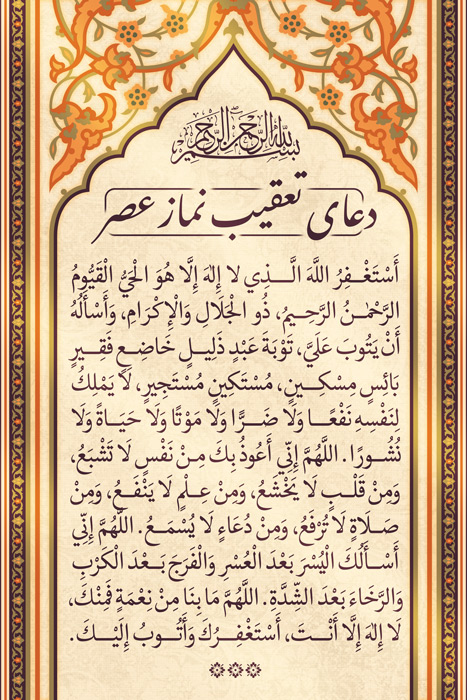 بسم الله الرحمن الرحیم
دعای تعقیب نماز عصر
أَسْتَغْفِرُ اللَّهَ الَّذِي لا إِلهَ إِلَّا هُوَ الْحَيُّ الْقَيُّومُ
الرَّحْمٰنُ الرَّحِيمُ، ذُو الْجَلَالِ وَالْإِكْرَامِ، وَأَسْأَلُهُ
أَنْ يَتُوبَ عَلَيَّ، تَوْبَةَ عَبْدٍ ذَلِيلٍ خَاضِعٍ فَقِيرٍ
بَائِسٍ مِسْكِينٍ، مُسْتَكِينٍ مُسْتَجِيرٍ، لَا يَمْلِكُ
لِنَفْسِهِ نَفْعًا وَلَا ضَرًّا وَلَا مَوْتًا وَلَا حَيَاةً وَلَا
نُشُورًا. اللَّهُمَّ إِنِّي أَعُوذُ بِكَ مِنْ نَفْسٍ لَا تَشْبَعُ،
وَمِنْ قَلْبٍ لَا يَخْشَعُ، وَمِنْ عِلْمٍ لَا يَنْفَعُ، وَمِنْ
صَلَاةٍ لَا تُرْفَعُ، وَمِنْ دُعَاءٍ لَا يُسْمَعُ. اللَّهُمَّ إِنِّي
أَسْأَلُكَ الْيُسْرَ بَعْدَ الْعُسْرِ وَالْفَرَجَ بَعْدَ الْكَرْبِ
وَالرَّخَاءَ بَعْدَ الشِّدَّةِ. اللَّهُمَّ مَا بِنَا مِنْ نِعْمَةٍ فَمِنْكَ،
لَا إِلَهَ إِلَّا أَنْتَ، أَسْتَغْفِرُكَ وَأَتُوبُ إِلَيْكَ.